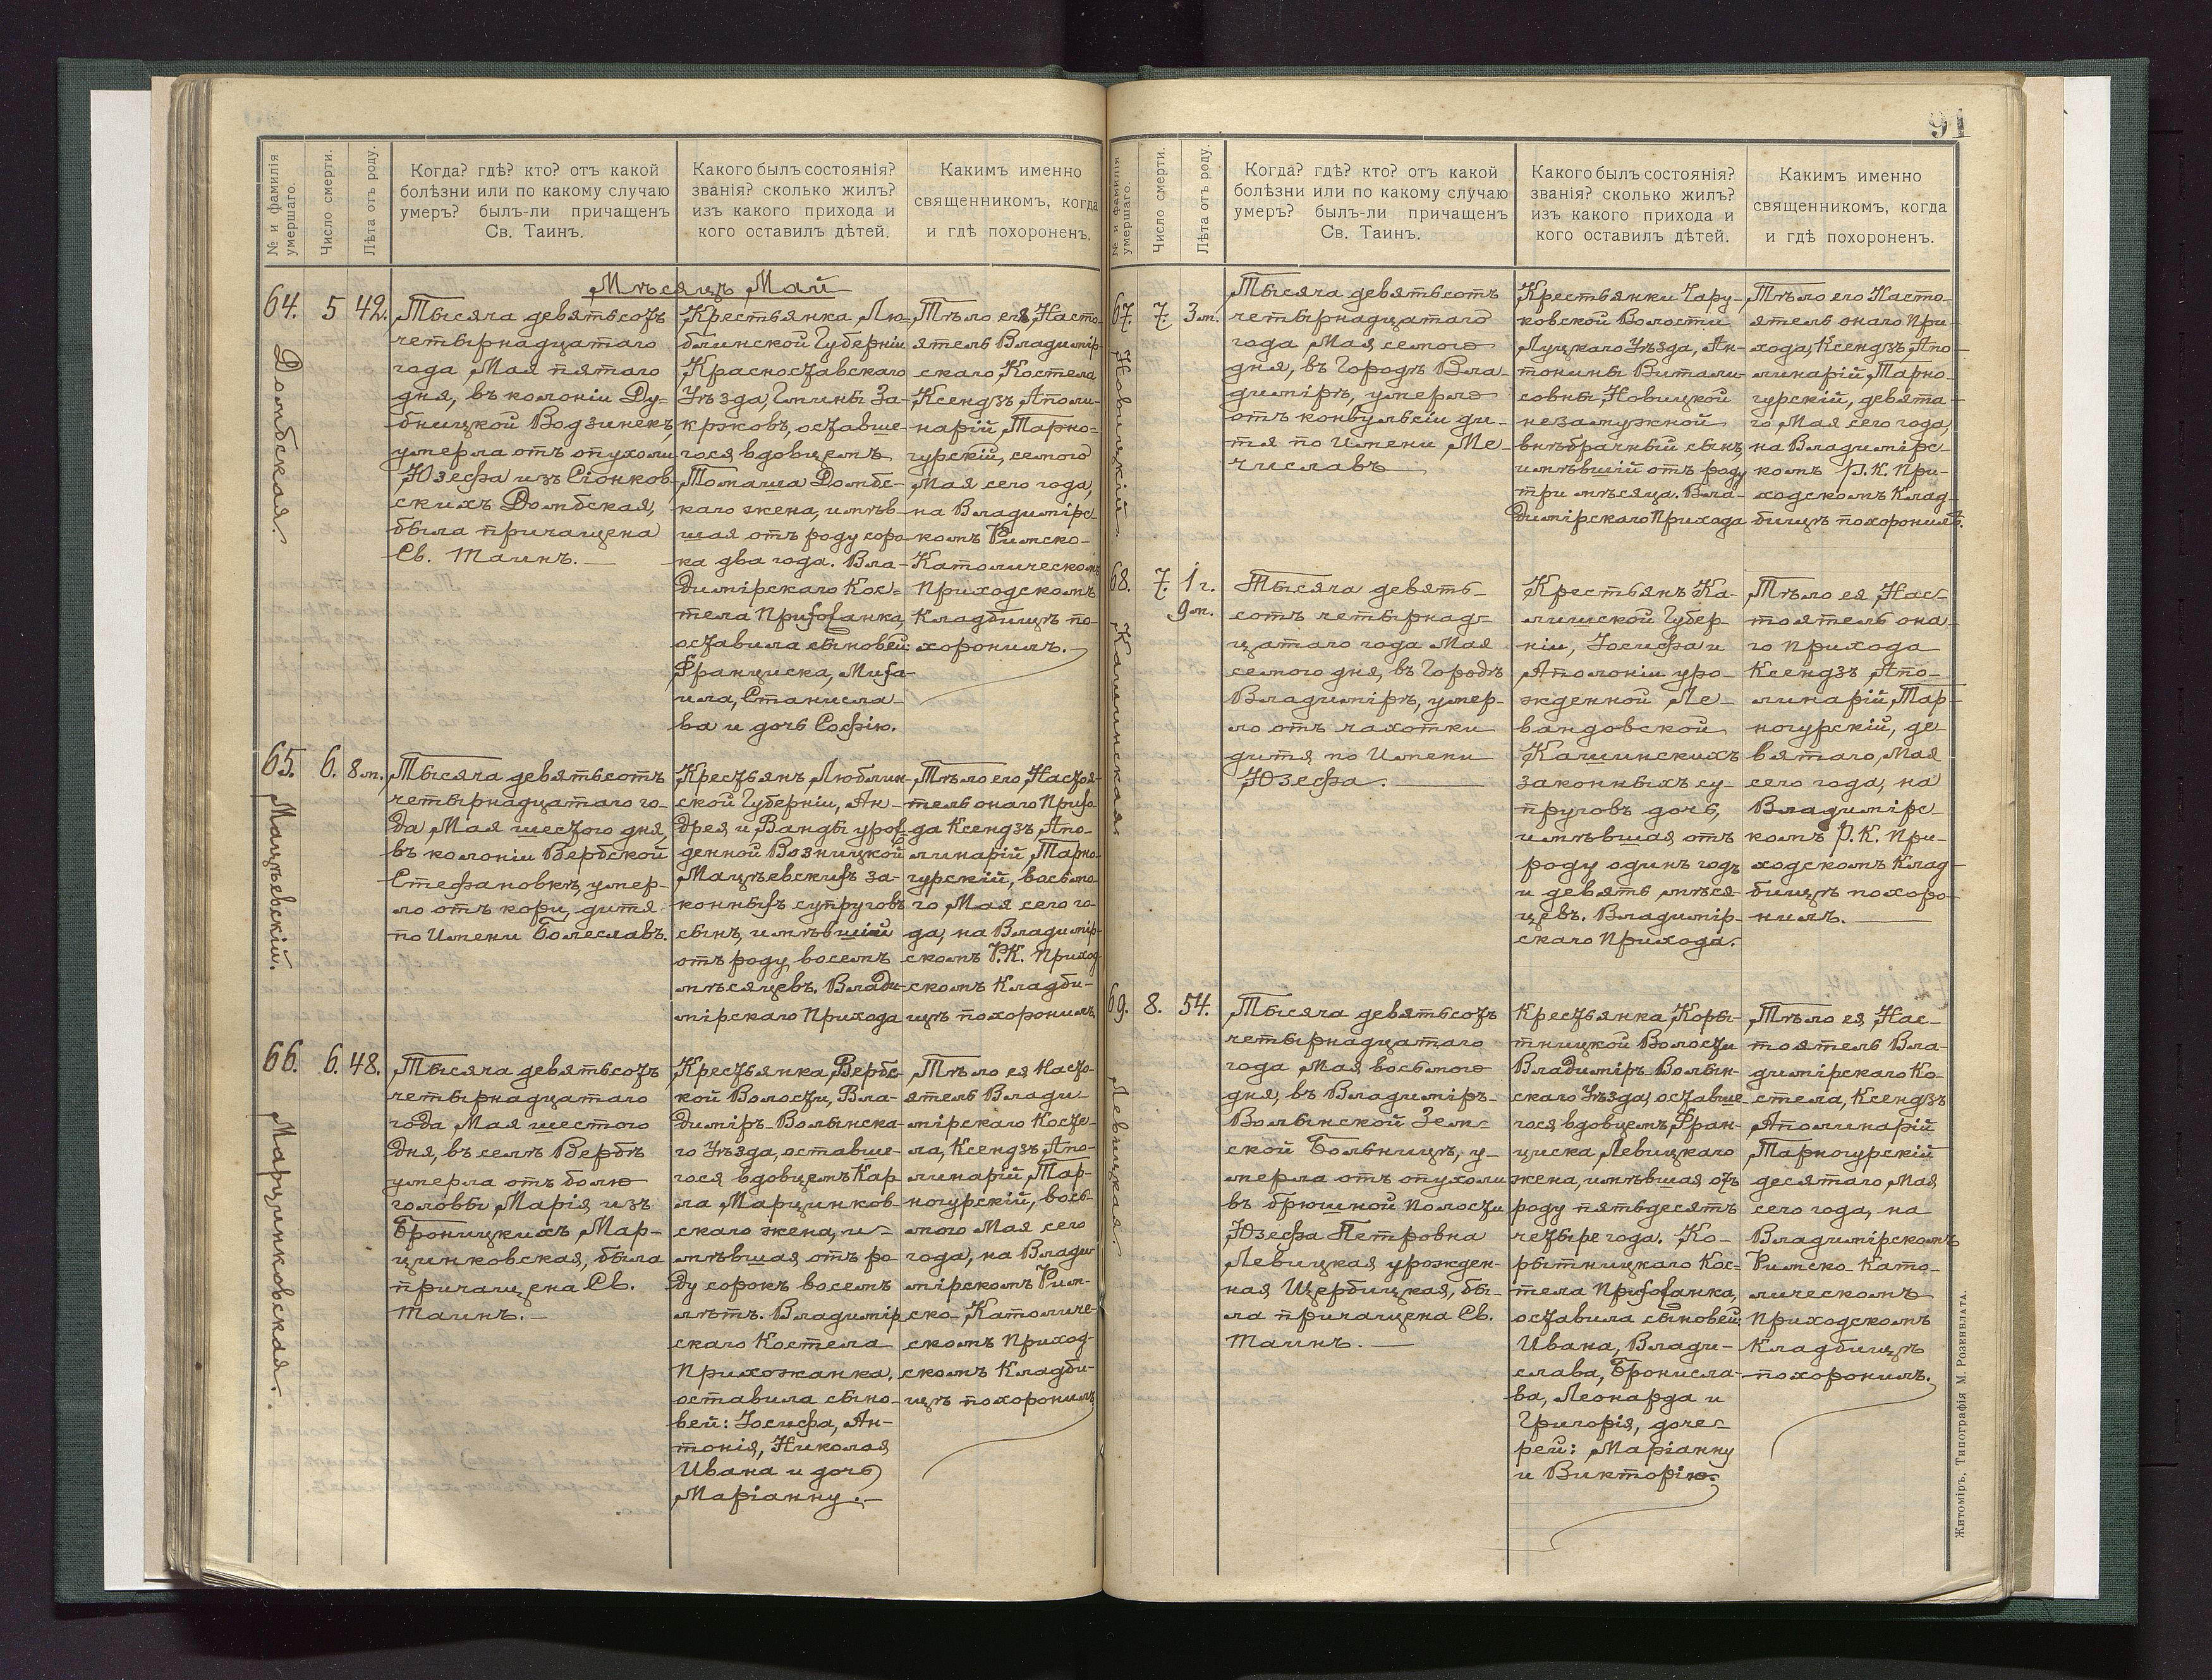 91
№ и фамилія
умершаго.
Число смерти.
Лѣта отъ роду.
Когда? гдѣ? кто? отъ какой
болѣзни или по какому случаю
умеръ? былъ-ли причащенъ
Св. Таинъ.
Какого былъ состоянія?
званія? сколько жилъ?
изъ какого прихода и
кого оставилъ дѣтей.
Какимъ именно
священникомъ, когда
и гдѣ похороненъ.
Мѣсяцъ Май
64.
Домбская.
5
42.
Тысяча девятьсотъ
четырнадцатаго
года, Мая пятаго
дня, въ колоніи Ду-
бницкой Водзинекъ,
умерла отъ опухоли
Юзефа изъ Сіонков-
скихъ Домбская,
была причащена
Св. Таинъ.
Крестьянка, Лю-
блинской Губерніи
Красноставскаго
Уѣзда, Гмины За-
кроковъ, оставше-
гося вдовцемъ
Томаша Домбс-
каго жена, имѣв-
шая отъ роду соро-
ка два года. Вла-
димірскаго Кос-
тела Прихожанка,
оставила сыновей:
Франциска, Миха-
ила, Станисла-
ва и дочь Софію.
Тѣло ея, Насто-
ятель Владимір-
скаго Костела
Ксендзъ Аполи-
нарій Тарно-
гурскій, седмого
Мая сего года,
на Владимірс-
комъ Римско-
Католическомъ
Приходскомъ
Кладбищѣ по-
хоронилъ.
65.
Мацѣевскій.
6.
8 м.
Тысяча девятьсотъ
четырнадцатаго го-
да, Мая шестого дня,
въ колоніи Вербской
Стефановкѣ, умер-
ло отъ кори, дитя
по Имени Болеславъ.
Крестьянъ, Люблин-
ской Губерніи, Ан-
дрея и Ванды урож-
денной Возницкой
Мацѣевскихъ за-
конныхъ супруговъ
сынъ, имѣвшій
отъ роду восемъ
мѣсяцевъ. Влади-
мірскаго Прихода
Тѣло его, Настоя-
тель онаго Прихо-
да Ксендзъ Апо-
линарій Тарно-
гурскій, восьмо-
го Мая сего го-
да, на Владимір-
скомъ Р.К. Приход-
скомъ Кладби-
щѣ похоронилъ.
66.
Марцинковская.
6.
48.
Тысяча девятьсотъ
четырнадцатаго
года Мая шестого
дня, въ селѣ Вербѣ
умерла отъ болю
головы, Марія изъ
Броницкихъ Мар-
цинковская, была
причащена Св.
Таинъ.
Крестьянка, Вербс-
кой Волости, Вла-
диміръ-Волынска-
го Уѣзда, оставше-
гося вдовцемъ Кар-
ла Марцинков-
скаго жена, и-
мѣвшая отъ ро-
ду сорокъ восемъ
лѣтъ. Владимір-
скаго Костела
Прихожанка,
оставила сыно-
вей: Іосифа, Ан-
тонія, Николая
Ивана и дочь
Маріанну.
Тѣло ея Насто-
ятель Влади-
мірскаго Косте-
ла, Ксендзъ Апо-
линарій, Тар-
ногурскій, вось-
мого Мая сего
года, на Влади-
мірскомъ Рим-
ско-Католиче-
скомъ Приход-
скомъ Кладби-
щѣ похоронилъ
№ и фамилія
умершаго.
Число смерти.
Лѣта отъ роду.
Когда? гдѣ? кто? отъ какой
болѣзни или по какому случаю
умеръ? былъ-ли причащенъ
Св. Таинъ.
Какого былъ состоянія?
званія? сколько жилъ?
изъ какого прихода и
кого оставилъ дѣтей.
Какимъ именно
священникомъ, когда
и гдѣ похороненъ.
67.
Новицкій
7.
3 м.
Тысяча девятьсотъ
четырнадцатаго
года Мая семого
дня, въ Городѣ Вла-
димірѣ, умерло
отъ конвульсіи ди-
тя по Имени Ме-
числавъ
Крестьянки Чару-
ковской Волости
Луцкаго Уѣзда, Ан-
тонины Витали-
совны, Новицкой
незамужной
внѣбрачный сынъ,
имѣвшій отъ роду
три мѣсяца. Вла-
димірскаго Прихода
Тѣло его Насто-
ятель онаго При-
хода, Ксендзъ, Апо-
линарій, Тарно-
гурскій, девята-
го Мая сего года,
на Владимірс-
комъ Р.К. При-
ходскомъ Клад-
бищѣ похоронилъ.
68.
Кашинская
7.
1 г.
9 м.
Тысяча девять-
сотъ четырнад-
цатаго года Мая
семого дня, въ Городѣ
Владимірѣ, умер-
ло отъ чахотки
дитя по Имени
Юзефа.
Крестьянъ Ка-
лишской Губер
ніи, Іосифа и
Аполоніи уро-
жденной Ле-
вандовской
Кашинскихъ
законныхъ су-
пруговъ дочь,
имѣвшая отъ
роду одинъ годъ
и девять мѣся-
цевъ. Владимір-
скаго Прихода.
Тѣло ея, Нас-
тоятель она-
го Прихода
Ксендзъ, Апо-
линарій, Тар-
ногурскій, де-
вятаго, Мая
сего года, на
Владимірс-
комъ Р.К. При-
ходскомъ Клад-
бищѣ похоро-
нилъ.
69.
Левицкая
8.
54.
Тысяча девятьсотъ
четырнадцатаго
года Мая восьмого
дня, въ Владиміръ-
Волынской Земс-
ской Больницѣ, у-
мерла отъ опухоли
въ брюшной полости
Юзефа Петровна
Левицкая урожден-
ная Щербицкая, бы-
ла причащена Св.
Таинъ.
Крестьянка, Коры-
тницкой Волости
Владиміръ-Волын-
скаго Уѣзда, оставше-
гося вдовцемъ, Фран-
циска, Левицкаго
жена, имѣвшая отъ
роду пятьдесятъ
четыре года. Ко-
рытницкаго Кос-
тела Прихожанка,
оставила сыновей:
Ивана, Влади-
слава, Бронисла-
ва, Леонарда и
Григорія, доче-
рей: Маріанну
и Викторію.
Тѣло ея, Нас-
тоятель Вла-
димірскаго Ко-
стела, Ксендзъ
Аполинарій
Тарногурскій
десятаго, Мая
сего года, на
Владимірскомъ
Римско-Като-
лическомъ
Приходскомъ
Кладбищѣ
похоронилъ.
Житоміръ, Типографія М. Розенблата.